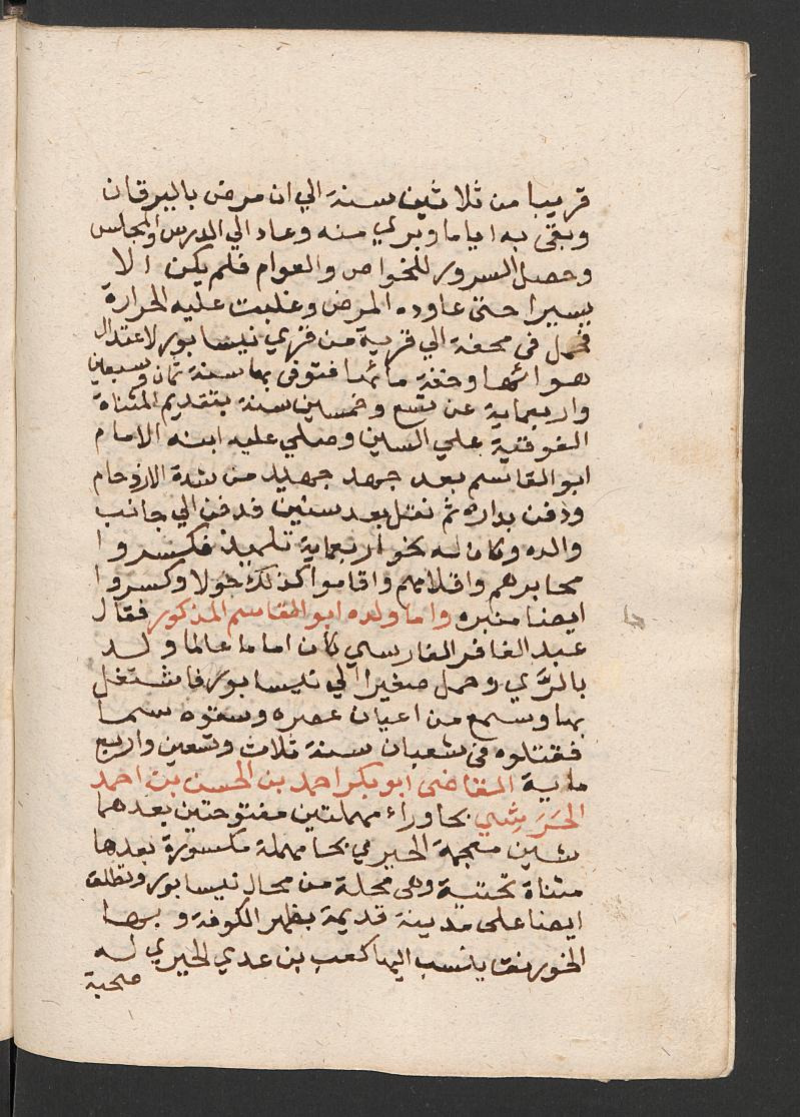 قريبا من ثلاثين سنة الي ان مرض باليرقان
وبقى به اياما وبري منه وعاد الي الدرس والمجلس
وحصل السرور للخواص والعوام فلم يكن الا
يسيرا حتى عاوده المرض وغلبت عليه الحرارة
فحمل في محفة الي قرية من قري نيسابور لاعتدال
هوائها وخفة مائها فتوفى بها سنة ثمان وسبعين
واربعماية عن تسع وخمسين سنة بتقديم المثناة
الفوقية علي السين وصلي عليه ابنه الامام
ابو القاسم بعد جهد جهيد من شدة الازدحام
ودفن بداره ثم نقل بعد سنين فدفن الي جانب
والده وكان له نحو اربعماية تلميذ فكسروا
محابرهم واقلامهم واقاموا كذلك حولا وكسروا
ايضا منبره واما ولده ابو القاسم المذكور فقال
عبد الغافر الفارسي كان اماما عالما ولد
بالرَّي وحمل صغيرا الي نيسابور فاشتغل
بها وسمع من اعيان عصره وسقوه سما
فقتلوه في شعبان سنة ثلاث وتسعين واربع
ماية القاضى ابو بكر احمد بن الحسن بن احمد
الحَرَشِي بحا وراء مهملتين مفتوحتين بعدهما
شين معجمة الحيري بحا مهملة مكسورة بعدها
مثناة تحتية وهى محلة من محال نيسابور وتطلق
ايضا على مدينة قديمة بظهر الكوفة وبها
الخورنق ينسب اليها كعب بن عدي الحيري له
صحبة